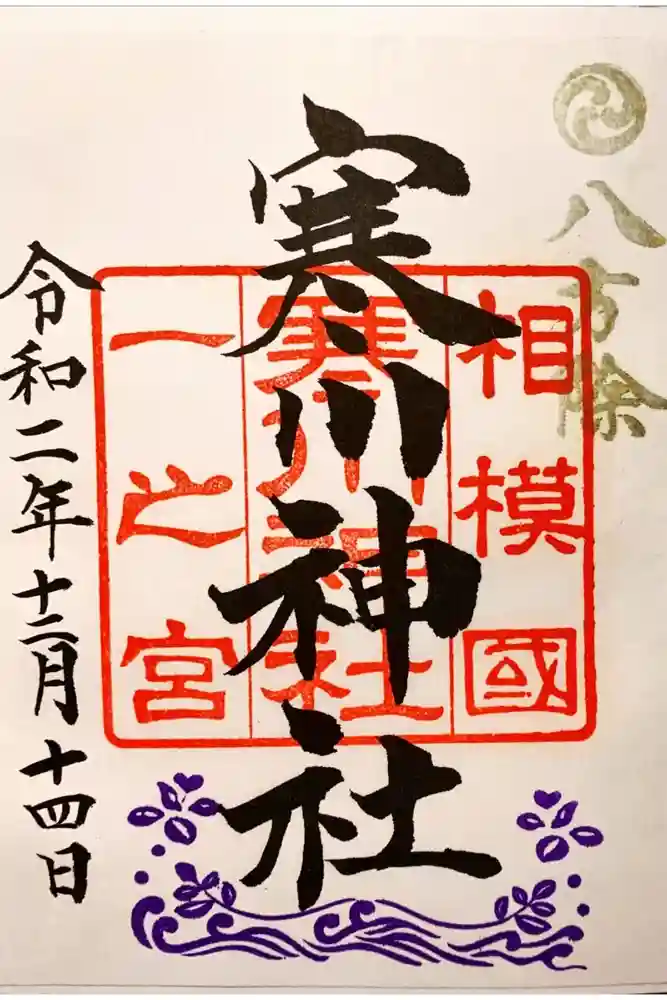 八方除
相模國
寒川神社
一之宮
寒川神社
令和二年十二月十四日